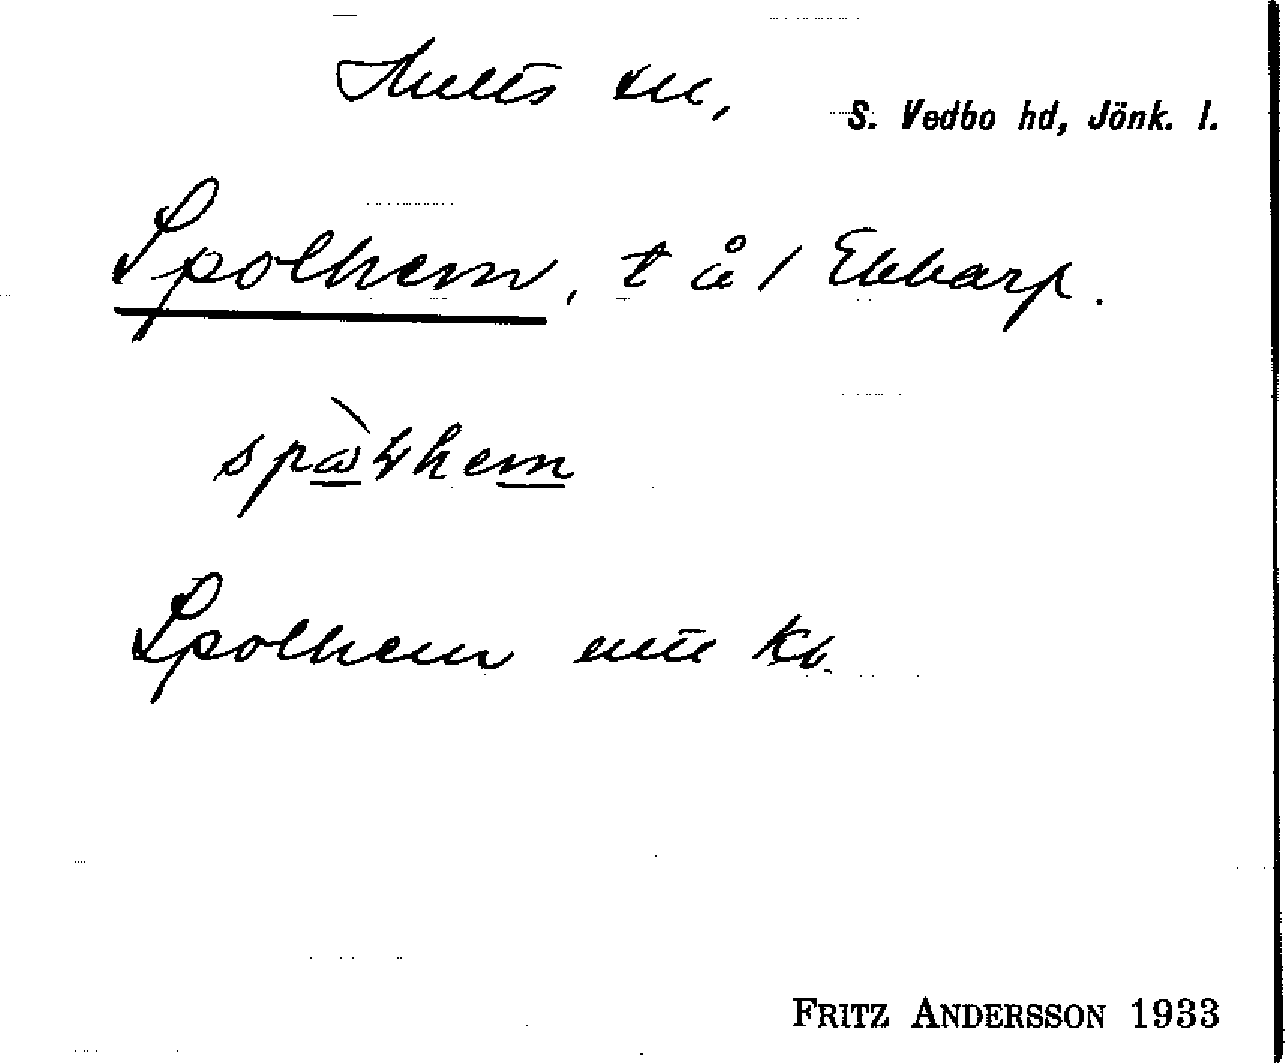 Hults sn, S. Vedbo hd, Jönk. l.
Spolhem, t å / Ebbarp.
spɷ̀ɫhem
Spolhem
FRITZ ANDERSSON 1933